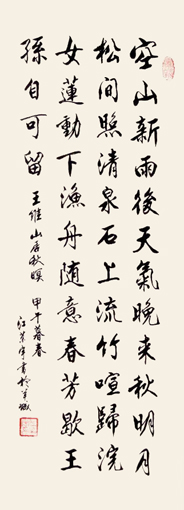 空山新雨後天氣晚来秋明月
松間照清泉石上流竹喧歸浣
女蓮動下漁舟随意春芳歇王
孫自可留
王維山居秋暝
甲午暮春